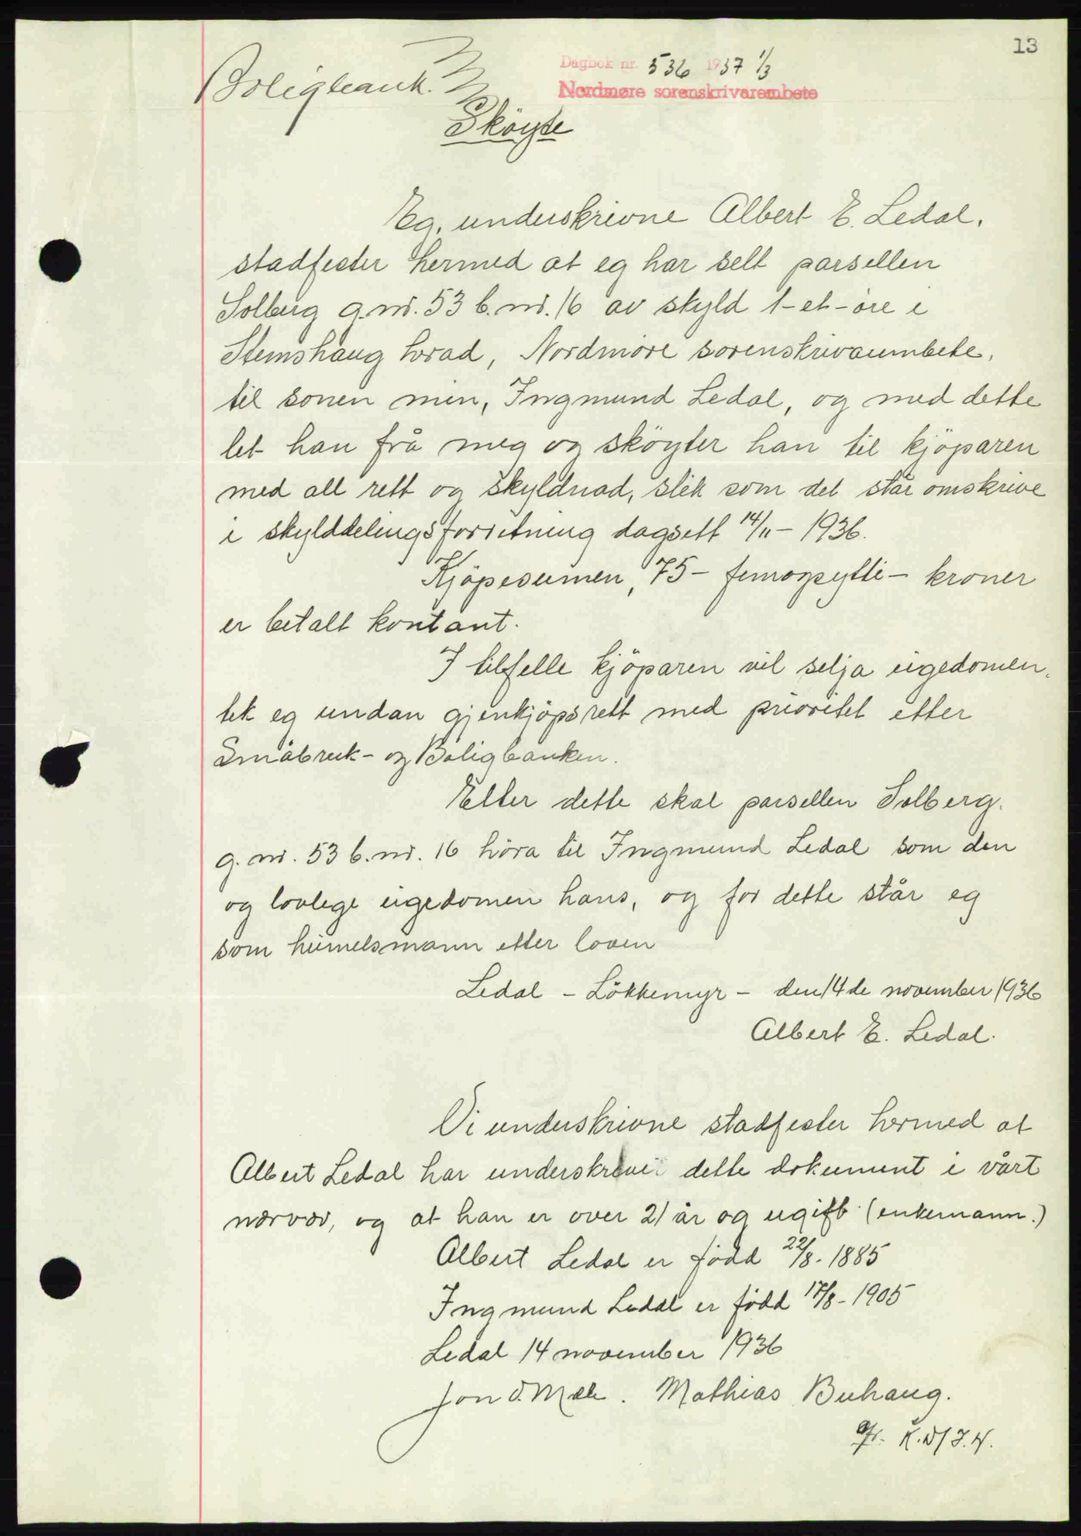 13
Dagbok nr. 536 1937 1/3
Nordmøre sorenskrivarembete
Boligbank.
Sköyte
Eg, underskrivne Albert E. Ledal,
stadfester hermed at eg har selt parsellen
Solberg g.nr. 53 b.nr. 16 av skyld 1-et-öre i
Stemshaug herad, Nordmöre sorenskrivarumbete,
til sonen min, Ingmund Ledal, og med dette
let han frå meg og sköyter han til kjöparen
med all rett og skyldnad, slik som det står omskrive
i skylddelingsforretning dagsett 14/11 - 1936.
Kjöpesumen, 75 - femogsytti - kroner
er betalt kontant.
I tilfelle kjöparen vil selja eigedomen,
tek eg undan gjenkjöpsrett med prioritet etter
Småbruk- og Boligbanken.
Etter dette skal parsellen Solberg,
g.nr. 53 b.nr. 16 höra til Ingmund Ledal som den
og lovlege eigedomen hans, og for dette står eg
som heimelsmann etter loven
Ledal - Lökkemyr - den 14de november 1936
Albert E. Ledal.
Vi underskrivne stadfester hermed at
Albert Ledal har underskrevi dette dokument i vårt
nærvær, og at han er over 21 år og ugift (enkemann.)
Albert Ledal er född 22/8 - 1885
Ingmund Ledal er född 17/8 - 1905
Ledal 14 november 1936
Jon O. Mæle. Mathias Buhaug.